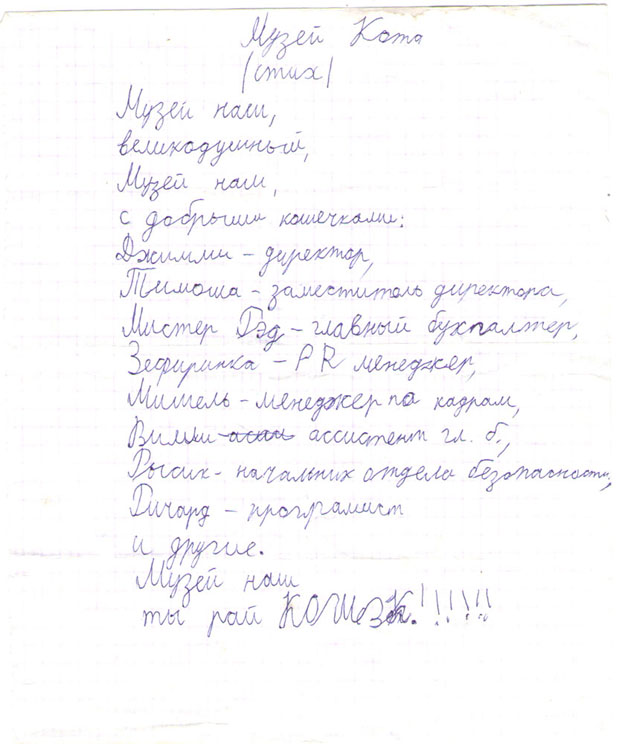 Музей Кота
(стих)
Музей наш,
великодушный,
Музей наш,
с добрыми кошечками:
Джимми - директор,
Тимоша - заместитоль директора,
Мистер Гэд - главный бухгалтер,
Зефиринка - PR менеджер,
Мишель - менеджер по кадрам,
Вилли - ассистент гл. б.,
Рысик - начальник отдела безопасности,
Ричард - програмист
и другие.
Музей наш
ты рай КОШЭК!!!!!!